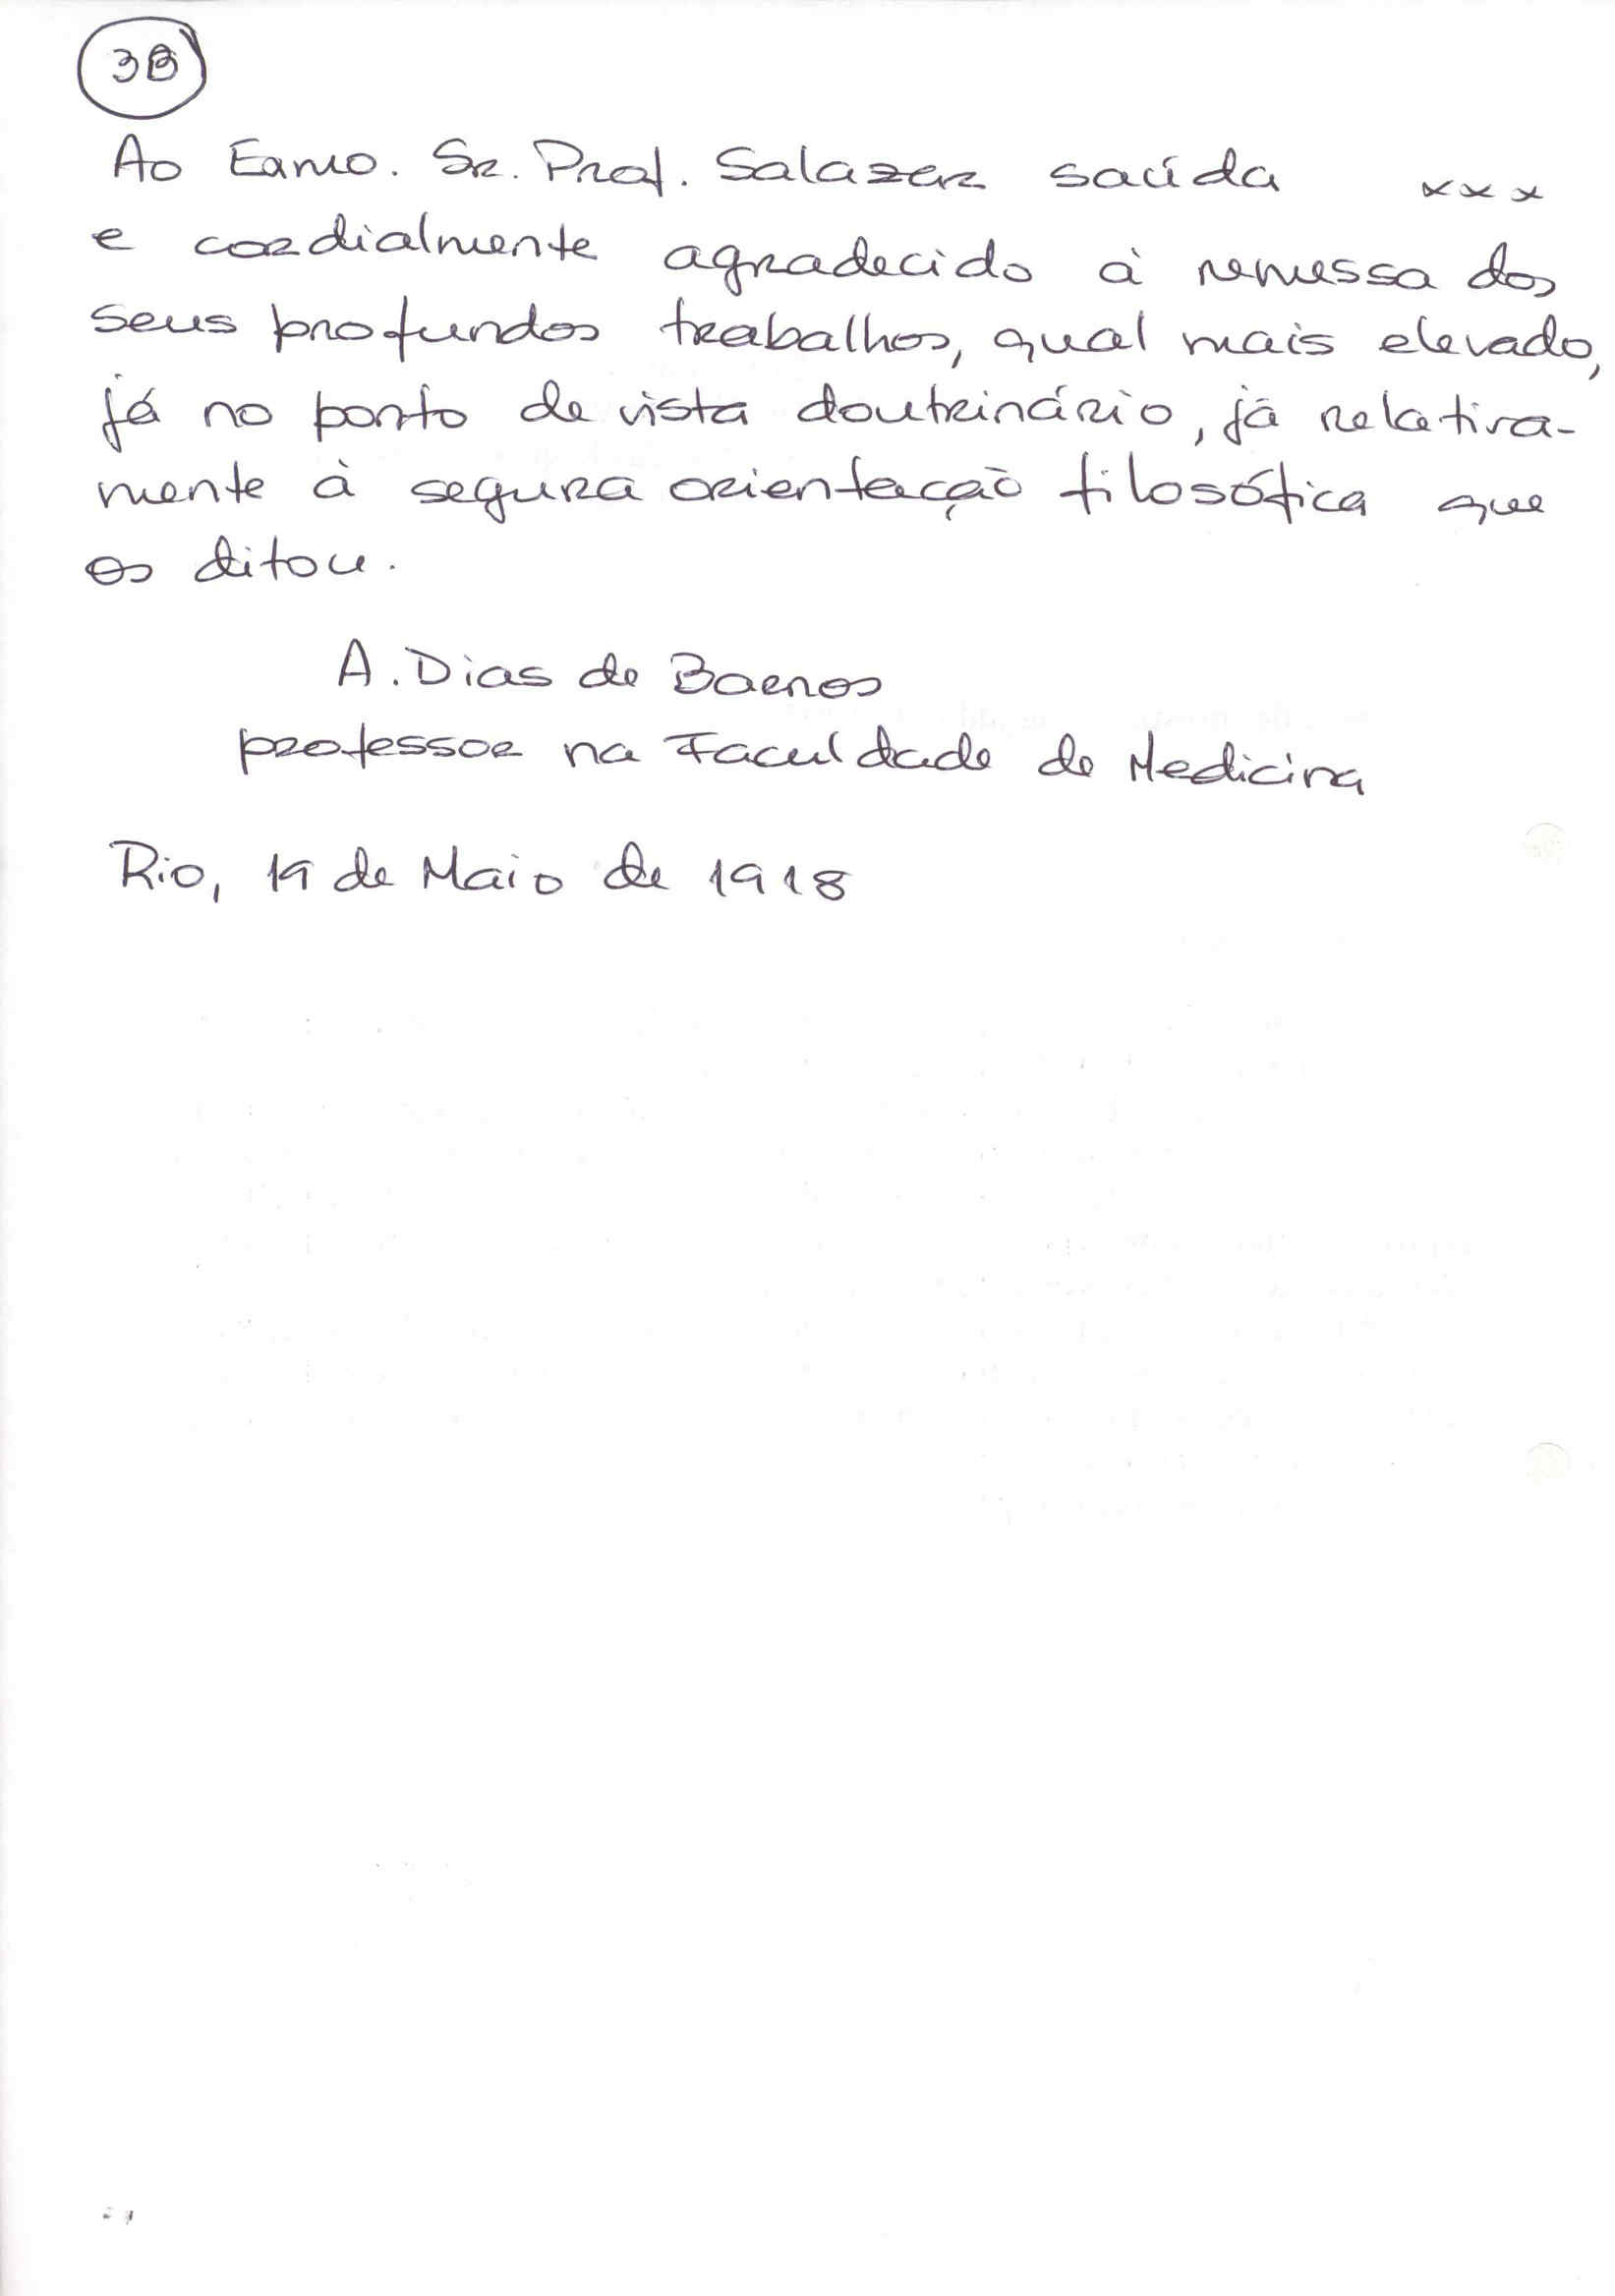 3B
Ao Exmo. Sr. Prof. Salazar saúda xxx
e cordialmente agradecido à remessa dos
seus profundos trabalhos, qual mais elevado,
já no ponto de vista doutrinário, já relativa-
mente à segura orientação filosófica que
os ditou.
A. Dias de Barros
professor na Faculdade de Medicina
Rio, 19 de Maio de 1918